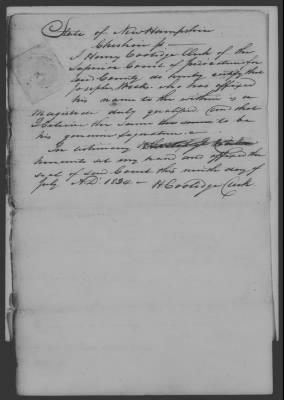 State of New Hampshire
Cheshire ss
I Henry Coolidge Clerk of the
Superior Court of Judicature for
said County do hereby certify that
Joseph who has affixed
his name to the within is a
Magistrate duly qualified and that
I believe the same to be
his genuine signature
In testimony
set my hand and affixed the
seal of said Court this ninth day of
July A.D. 1834 - H Coolidge Clerk